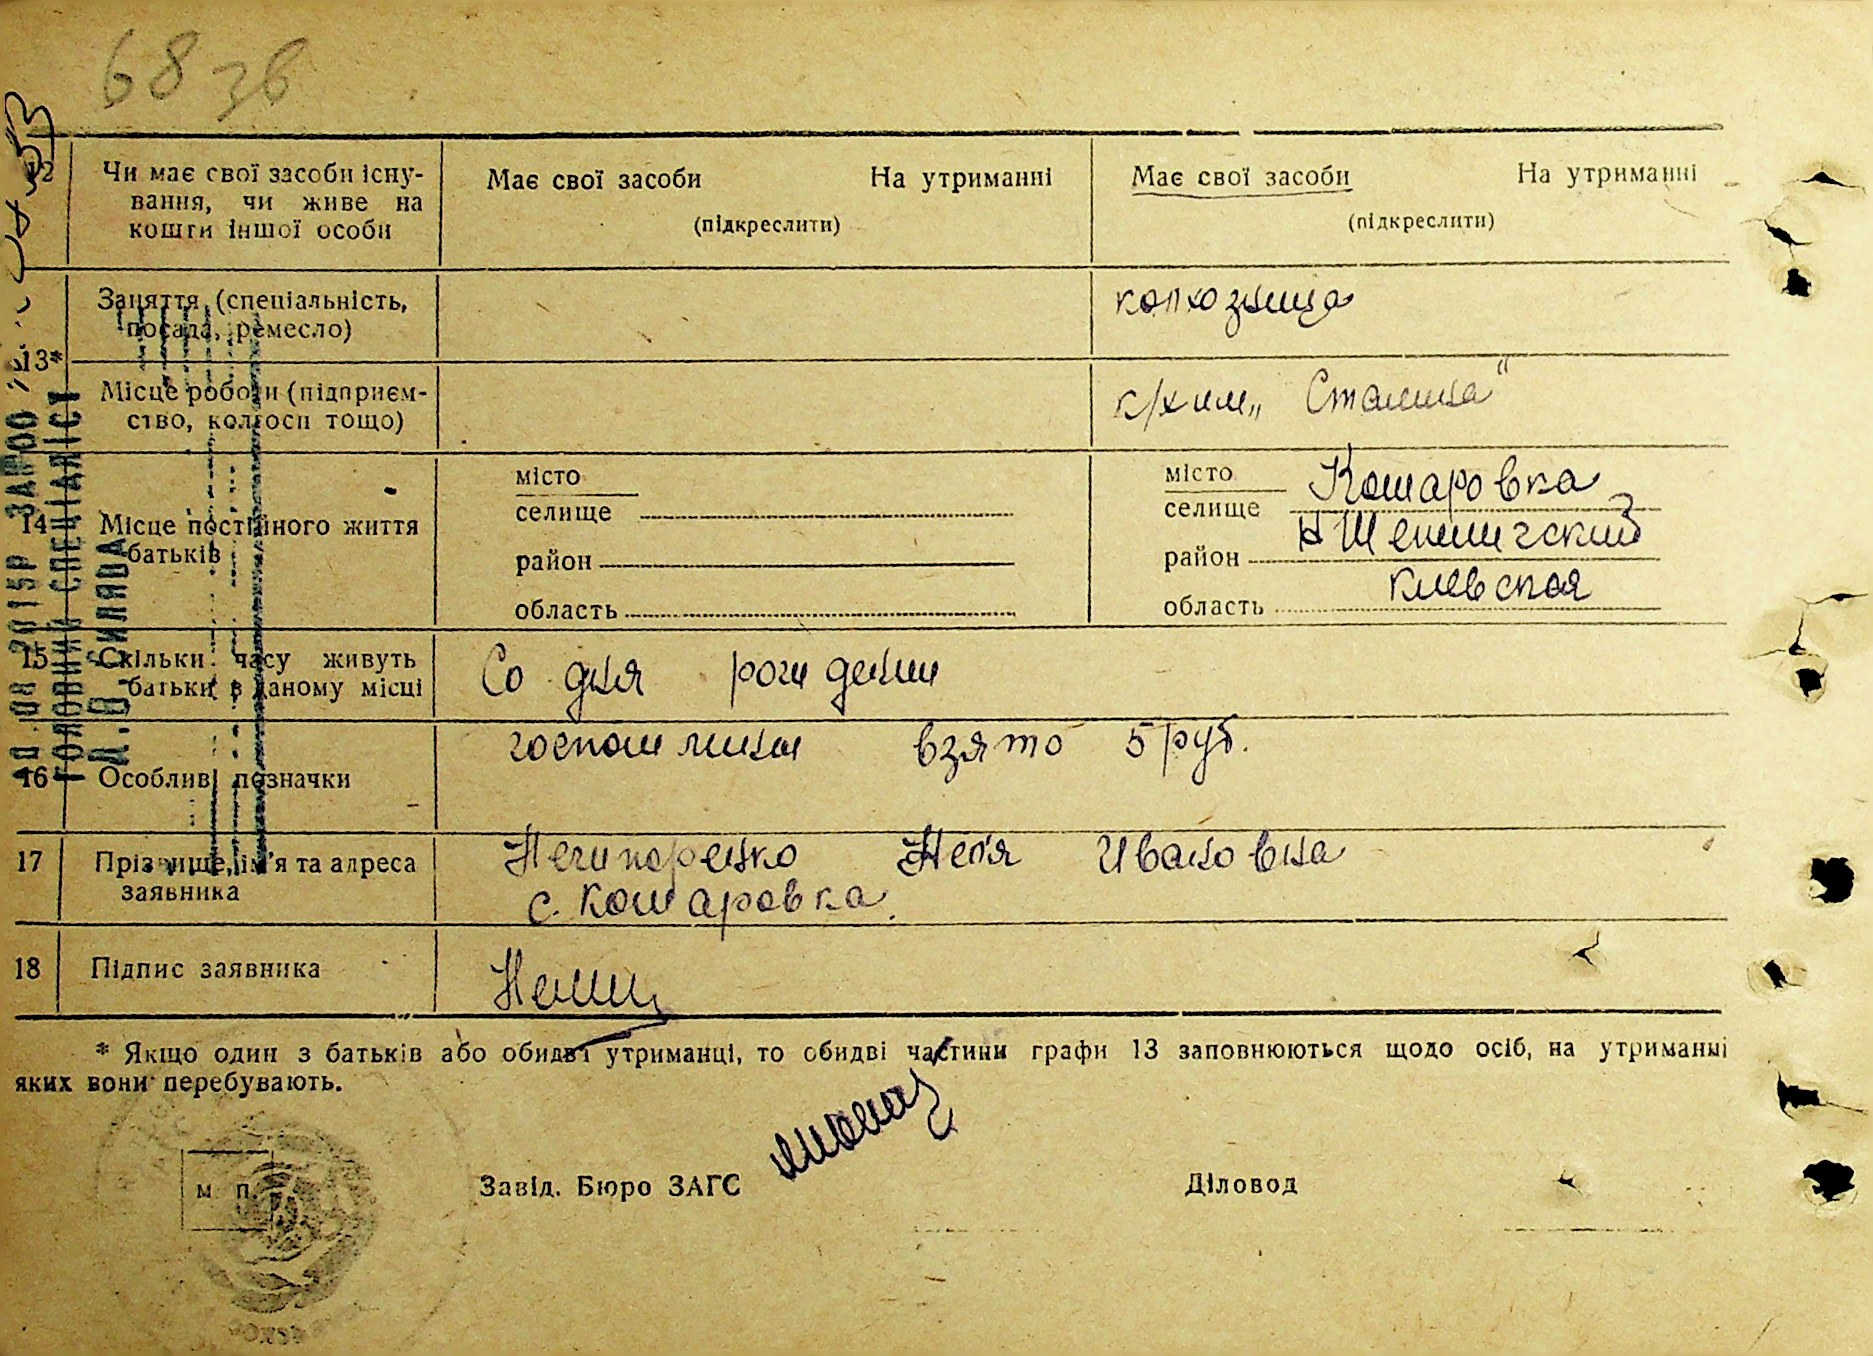 68 зв
12 Чи має свої засоби існу-
вання, чи живе на
кошти іншої особи
Має свої засоби На утриманні
(підкреслити)
Має свої засоби На утриманні
(підкреслити)
13* Заняття (спеціальність,
посада, ремесло)
колхозница
Місце роботи (підприєм-
ство, колгосп тощо)
к/х им „Сталина"
14 Місце постійного життя
батьків
місто
селище
район
область
місто Кошаровка
селище
район Н Шепеличский
область киевская
15 Скільки часу живуть
батьки в даному місці
Со дня рождения
16 Особливі позначки
госпошлины взято 5 руб.
17 Прізвище, ім'я та адреса
заявника
Нечипоренко Иванована
с. Кошаровка.
18 Підпис заявника
* Якщо один з батьків або обидві утриманці, то обидві частини графи 13 заповнюються щодо осіб, на утриманні
яких вони перебувають.
м п.
Завід. Бюро ЗАГС
Діловод
08 2015Р
ГОЛОВНИЙ СПЕЦІАЛІСТ